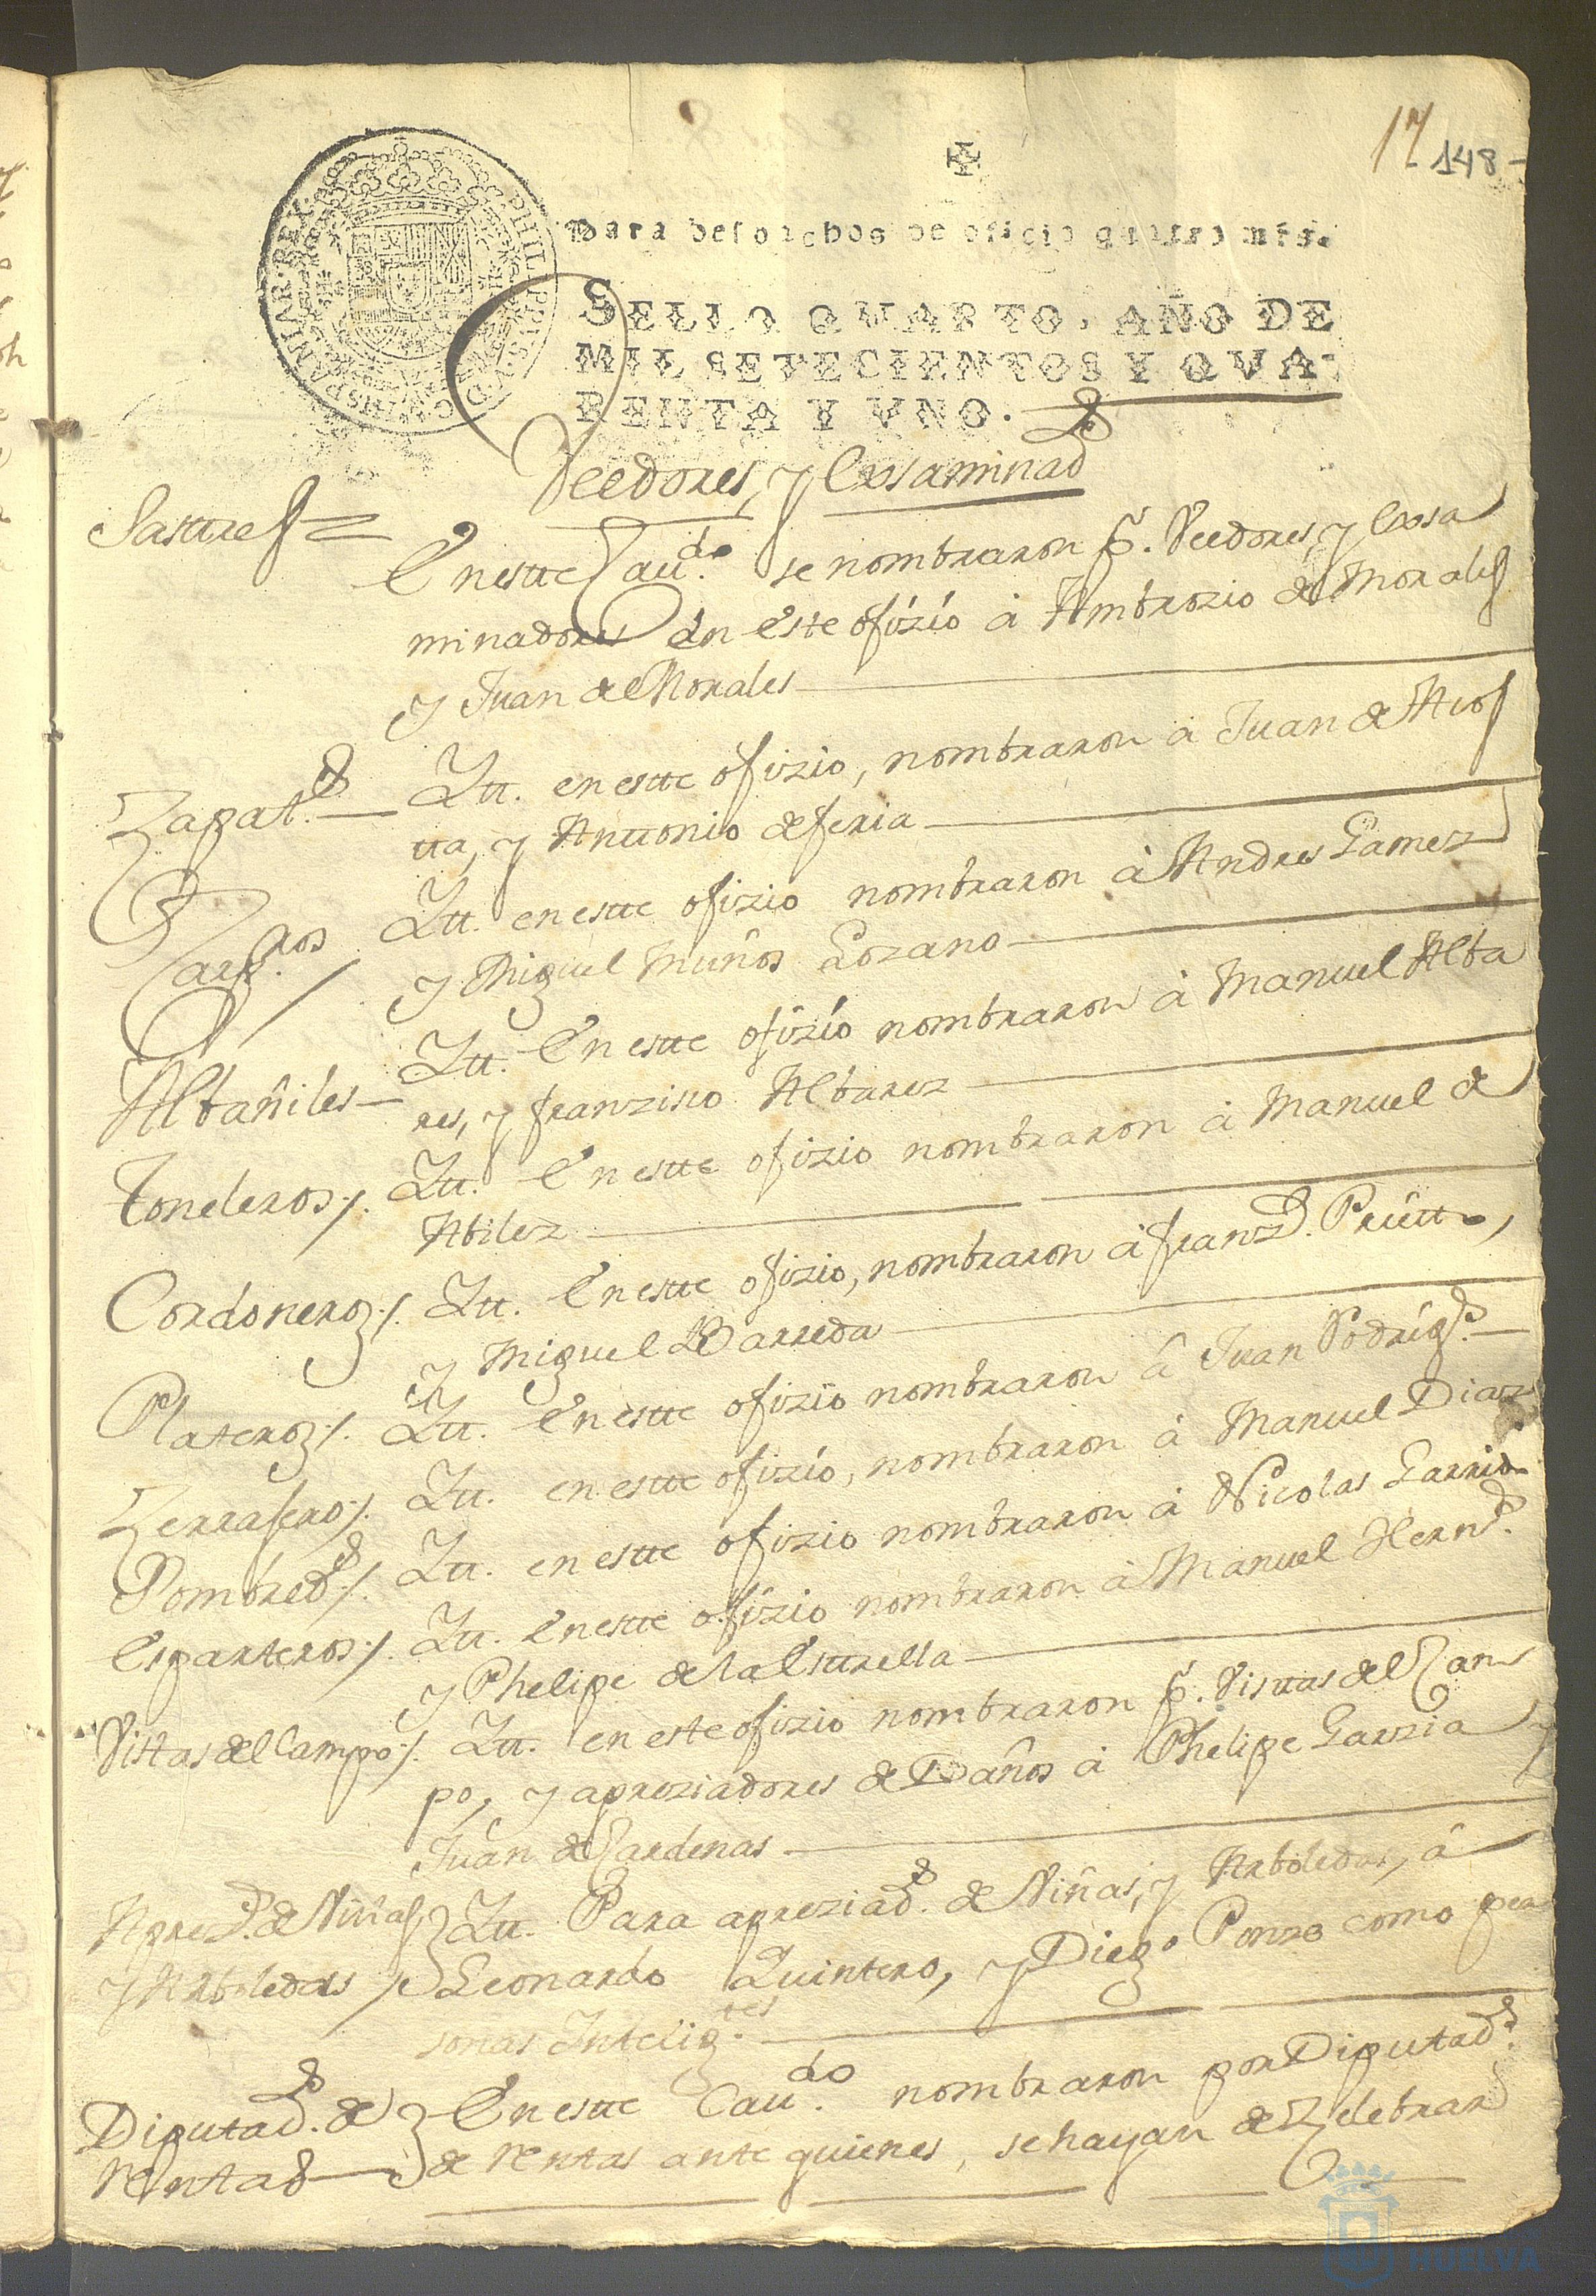 17 148-
PHILIPPVS V D G HISPANIAR REX
Para despachos de oficio quatro mrs.
SELLO QVARTO, AÑO DE
MIL SETECIENTOS Y QVA-
RENTA Y VNO.
Veedores, y Exsaminad.s
Sastres =
En estte Cau.do se nombraron p.r Veedores, y Exsa
minadores en este ofizio à Ambrozio de Morales
y Juan de Morales
Zapat.s — Itt. en estte ofizio, nombraron à Juan de Acos
tta, y Anttonio de feria
Carp.ros / Itt. en estte ofizio nombraron à Andres Gamez
y Miguel Muños Lozano
Albañiles — Itt. En estte ofizio nombraron à Manuel Alba
res, y franzisco Albarez
Toneleros /. Itt. En estte ofizio nombraron à Manuel de
Abilez
Cordoneros /. Itt. En estte ofizio, nombraron à franz.o Priettto,
y Miguel Barreda
Plateros /. Itt. En estte ofizio nombraron â Juan Rodrig.s —
Zerrajero /. Itt. en estte ofizio, nombraron à Manuel Diaz
Itt. en estte ofizio nombraron à Nicolas Garrido
Esparteros /. Itt. En estte ofizio nombraron à Manuel Hern.s
y Phelipe de la Esttrella
Vistas del Campo /. Itt. en este ofizio nombraron p.r Visttas del Cam
po, y apreziadores de Daños à Phelipe Garzia y
Juan de Cardenas
Aprez.s de Viñas, Itt. Para apreziad.s de Viñas, y Arboledas, â
y Arboledas / Leonardo Quintero, y Diego Ponze como per
sonas Intelig.tes
Diputad.s de En estte Cau.do nombraron por Diputad.s
Rentas — de rentas ante quienes, se hayan de Zelebrar
HUELVA